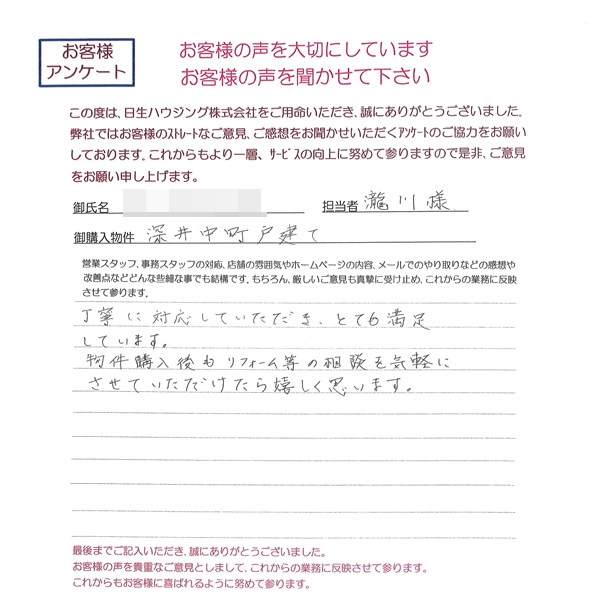 お客様
アンケート
お客様の声を大切にしています
お客様の声を聞かせて下さい
この度は、日生ハウジング株式会社をご用命いただき、誠にありがとうございました。
弊社ではお客様のストレートなご意見、ご感想をお聞かせいただくアンケートのご協力をお願い
しております。これからもより一層、サービスの向上に努めて参りますので是非、ご意見
をお願い申し上げます。
御氏名 担当者 瀧川様
御購入物件 深井中町戸建て
営業スタッフ、事務スタッフの対応、店舗の雰囲気やホームページの内容、メールでのやり取りなどの感想や
改善点などどんな些細な事でも結構です。もちろん、厳しいご意見も真摯に受け止め、これからの業務に反映
させて参ります。
丁寧に対応していただき、とても満足
しています。
物件購入後もリフォーム等の相談を気軽に
させていただけたら嬉しく思います。
最後までご記入いただき、誠にありがとうございました。
お客様の声を貴重なご意見としまして、これからの業務に反映させて参ります。
これからもお客様に喜ばれるように努めて参ります。